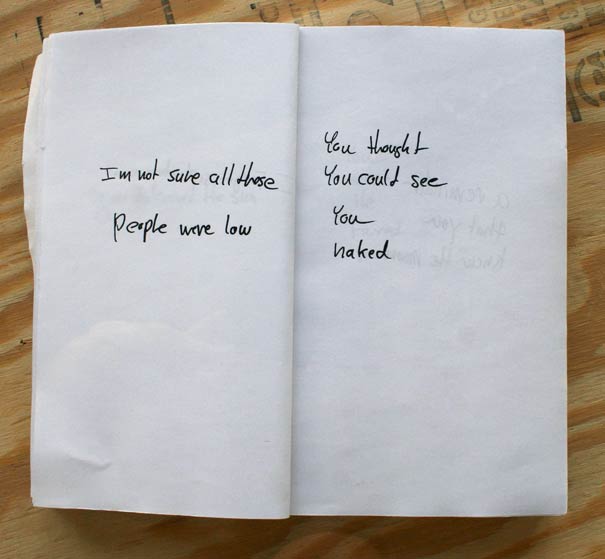 I'm not sure all those
people were low
You thought
You could see
You
naked